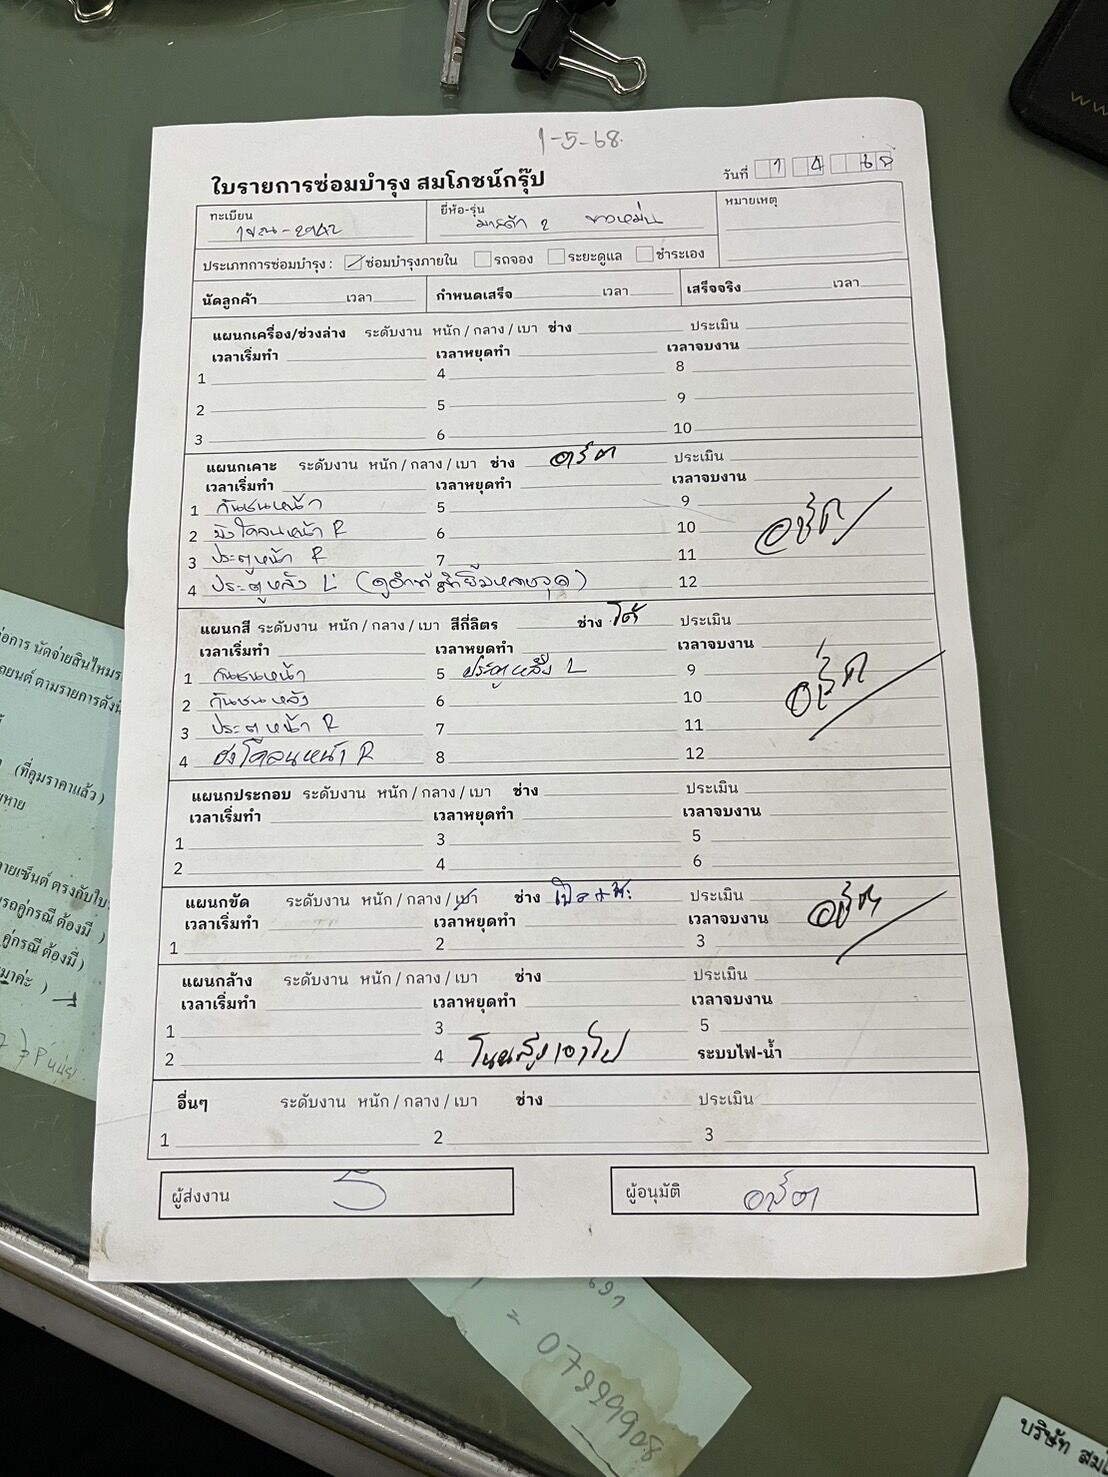 1-5-68.
ใบรายการซ่อมบำรุง สมโภชน์กรุ๊ป
วันที่ 1 4 68
ทะเบียน
ยี่ห้อ-รุ่น มาสด้า 2
หมายเหตุ
ประเภทการซ่อมบำรุง : ซ่อมบำรุงภายใน รถจอง ระยะดูแล ชำระเอง
นัดลูกค้า เวลา กำหนดเสร็จ เวลา เสร็จจริง เวลา
แผนกเครื่อง/ช่วงล่าง ระดับงาน หนัก / กลาง / เบา ช่าง ประเมิน
เวลาเริ่มทำ เวลาหยุดทำ เวลาจบงาน
1 4 8
2 5 9
3 6 10
แผนกเคาะ ระดับงาน หนัก / กลาง / เบา ช่าง ประเมิน
เวลาเริ่มทำ เวลาหยุดทำ เวลาจบงาน
1 กันชนหน้า 5 9
2 บังโคลนหน้า R 6 10
3 ประตูหน้า R 7 11
4 ประตูหลัง L 12
แผนกสี ระดับงาน หนัก / กลาง / เบา สีกี่ลิตร ช่าง ประเมิน
เวลาเริ่มทำ เวลาหยุดทำ เวลาจบงาน
1 กันชนหน้า 5 ประตูหลัง L 9
2 กันชนหลัง 6 10
3 ประตูหน้า R 7 11
4 บังโคลนหน้า R 8 12
แผนกประกอบ ระดับงาน หนัก / กลาง / เบา ช่าง ประเมิน
เวลาเริ่มทำ เวลาหยุดทำ เวลาจบงาน
1 3 5
2 4 6
แผนกขัด ระดับงาน หนัก / กลาง / เบา ช่าง ประเมิน
เวลาเริ่มทำ เวลาหยุดทำ เวลาจบงาน
1 2 3
แผนกล้าง ระดับงาน หนัก / กลาง / เบา ช่าง ประเมิน
เวลาเริ่มทำ เวลาหยุดทำ เวลาจบงาน
1 3 5
2 4 ระบบไฟ-น้ำ
อื่นๆ ระดับงาน หนัก / กลาง / เบา ช่าง ประเมิน
1 2 3
ผู้ส่งงาน
ผู้อนุมัติ
(ที่คุมราคาแล้ว)
คู่กรณี ต้องมี )
บริษัท